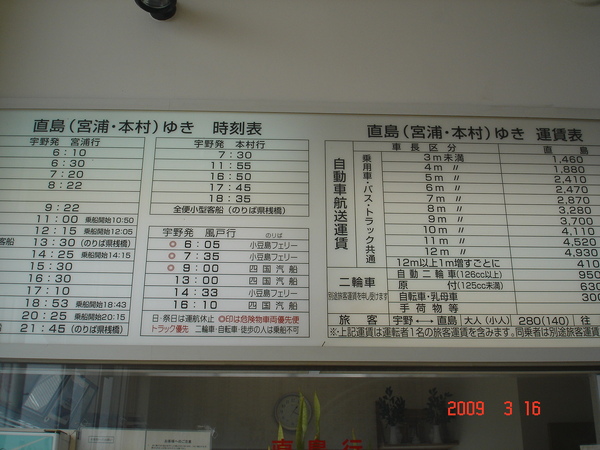 直島(宮浦・本村)ゆき 時刻表
宇野発 宮浦行
6:10
6:30
7:20
8:22
9:22
11:00 乗船開始10:50
12:15 乗船開始12:05
客船 13:30 (のりば県桟橋)
14:25 乗船開始14:15
15:30
16:30
17:10
18:53 乗船開始18:43
20:25 乗船開始20:15
21:45 (のりば県桟橋)
宇野発 本村行
7:30
11:55
16:50
17:45
18:35
全便小型客船 (のりば県桟橋)
宇野発 風戸行 のりば
◎ 6:05 小豆島フェリー
◎ 7:35 小豆島フェリー
◎ 9:00 四国汽船
13:00 四国汽船
14:33 小豆島フェリー
16:10 四国汽船
日・祭日は運航休止 ◎印は危険物車両優先便
トラック優先 二輪車・自転車・徒歩の人は乗船不可
直島(宮浦・本村)ゆき 運賃表
自動車航送運賃
乗用車・バス・トラック共通
車長区分 直島
3m未満 1,460
4m 〃 1,880
5m 〃 2,410
6m 〃 2,470
7m 〃 2,870
8m 〃 3,280
9m 〃 3,700
10m 〃 4,110
11m 〃 4,520
12m 〃 4,930
12m以上1m増すごとに 410
二輪車
別途旅客運賃を申し受けます
自動二輪車(126cc以上) 950
原付(125cc未満) 630
自転車・乳母車 300
手荷物等
旅客 宇野←→直島 大人(小人) 280(140) 往
※上記運賃は運転者1名の旅客運賃を含みます。同乗者は別途旅客運賃
直島行
2009 3 16